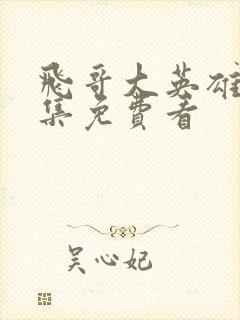 飛哥大英雄
集免費看
吴心妃